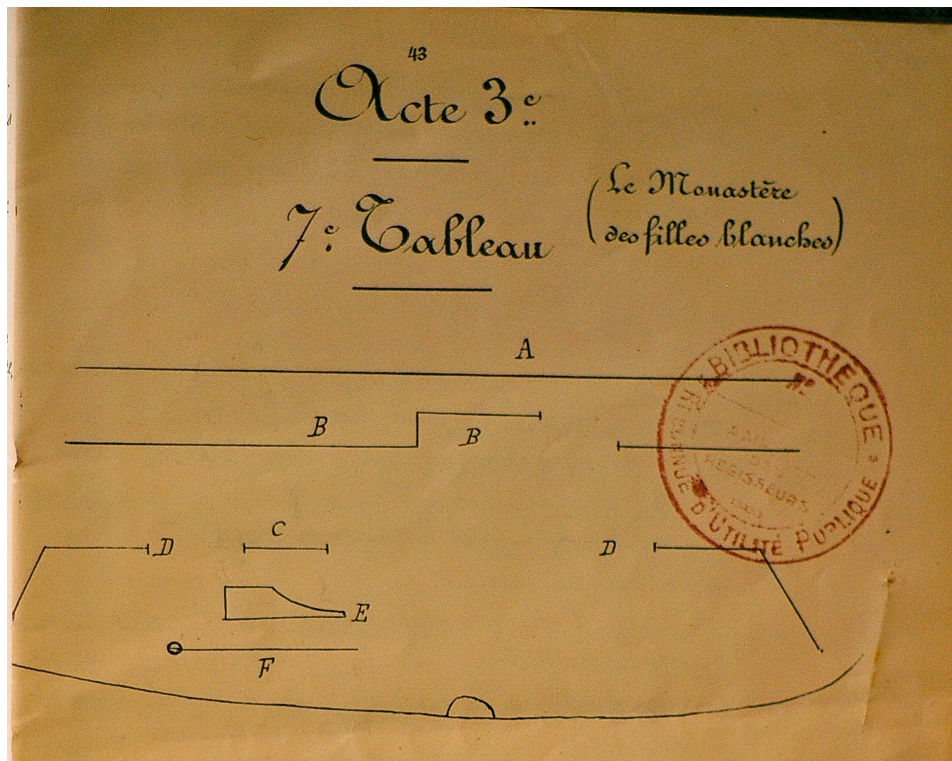 43
Acte 3e
7e Tableau
(Le Monastère
des filles blanches)
A
B
B
C
D
D
E
F
BIBLIOTHÈQUE
No
RÉGISSEURS
D'UTILITÉ PUBLIQUE